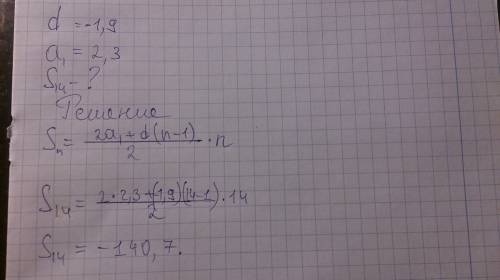 d = -1,9
a₁ = 2,3
S₁₄ - ?
Решение
Sₙ = (2a₁ + d(n-1))/2 · n
S₁₄ = (2 · 2,3 + (-1,9)(14-1))/2 · 14
S₁₄ = -140,7.